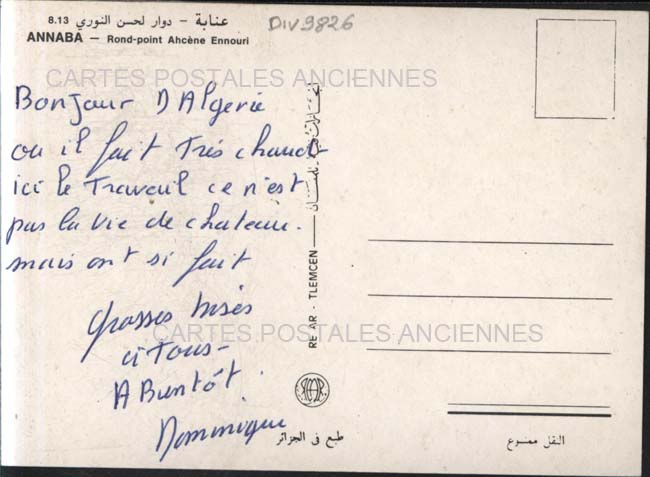 8.13 عنابة - دوار لحسن النوري
ANNABA — Rond-point Ahcène Ennouri
Div9826
CARTES POSTALES ANCIENNES
Bonjour D Algerie
ou il fait Très chaud
ici le Travail ce n'est
pas la vie de chateau.
mais ont si fait
Grosses bises
a Tous -
A Bientôt
Dominique
CARTES POSTALES ANCIENNES
RE AR - TLEMCEN
طبع في الجزائر
النقل ممنوع